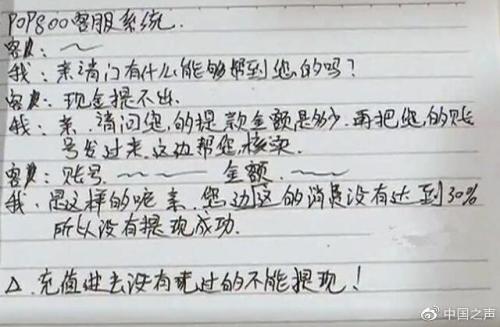 POP800客服系统.
客户: ~
我: 亲请问有什么能够帮到您的吗?
客户: 现金提不出.
我: 亲.请问您的提款金额是多少.再把您的账
号发过来.这边帮您核实.
客户: 账号 —— 金额. ——
我: 是这样的呢亲.您边这的消费没有达到30%
所以没有提现成功.
△.充值进去没有玩过的不能提现!
@中国之声